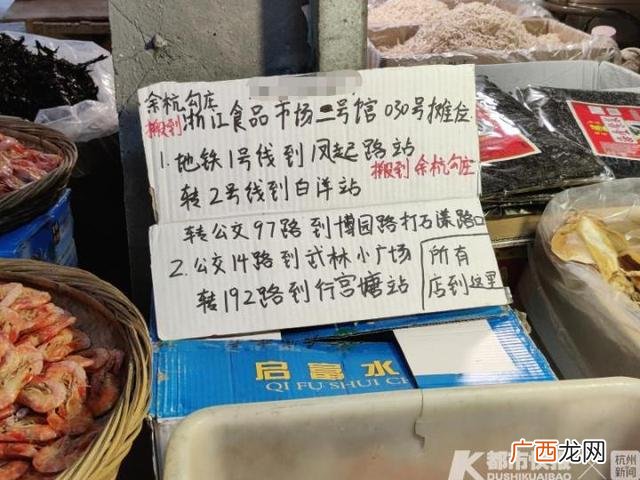 余杭勾庄
搬到浙江食品市场二号馆 030号摊位
1. 地铁1号线到凤起路站
搬到余杭勾庄
转2号线到白洋站
转公交97路到博园路打石漾路口
2. 公交14路到武林小广场
转192路到行宫塘站
所有
店到这里
启富水
QI FU SHUI CE
都市快报
DUSHIKUAIBAO
杭州
新闻
广西龙网